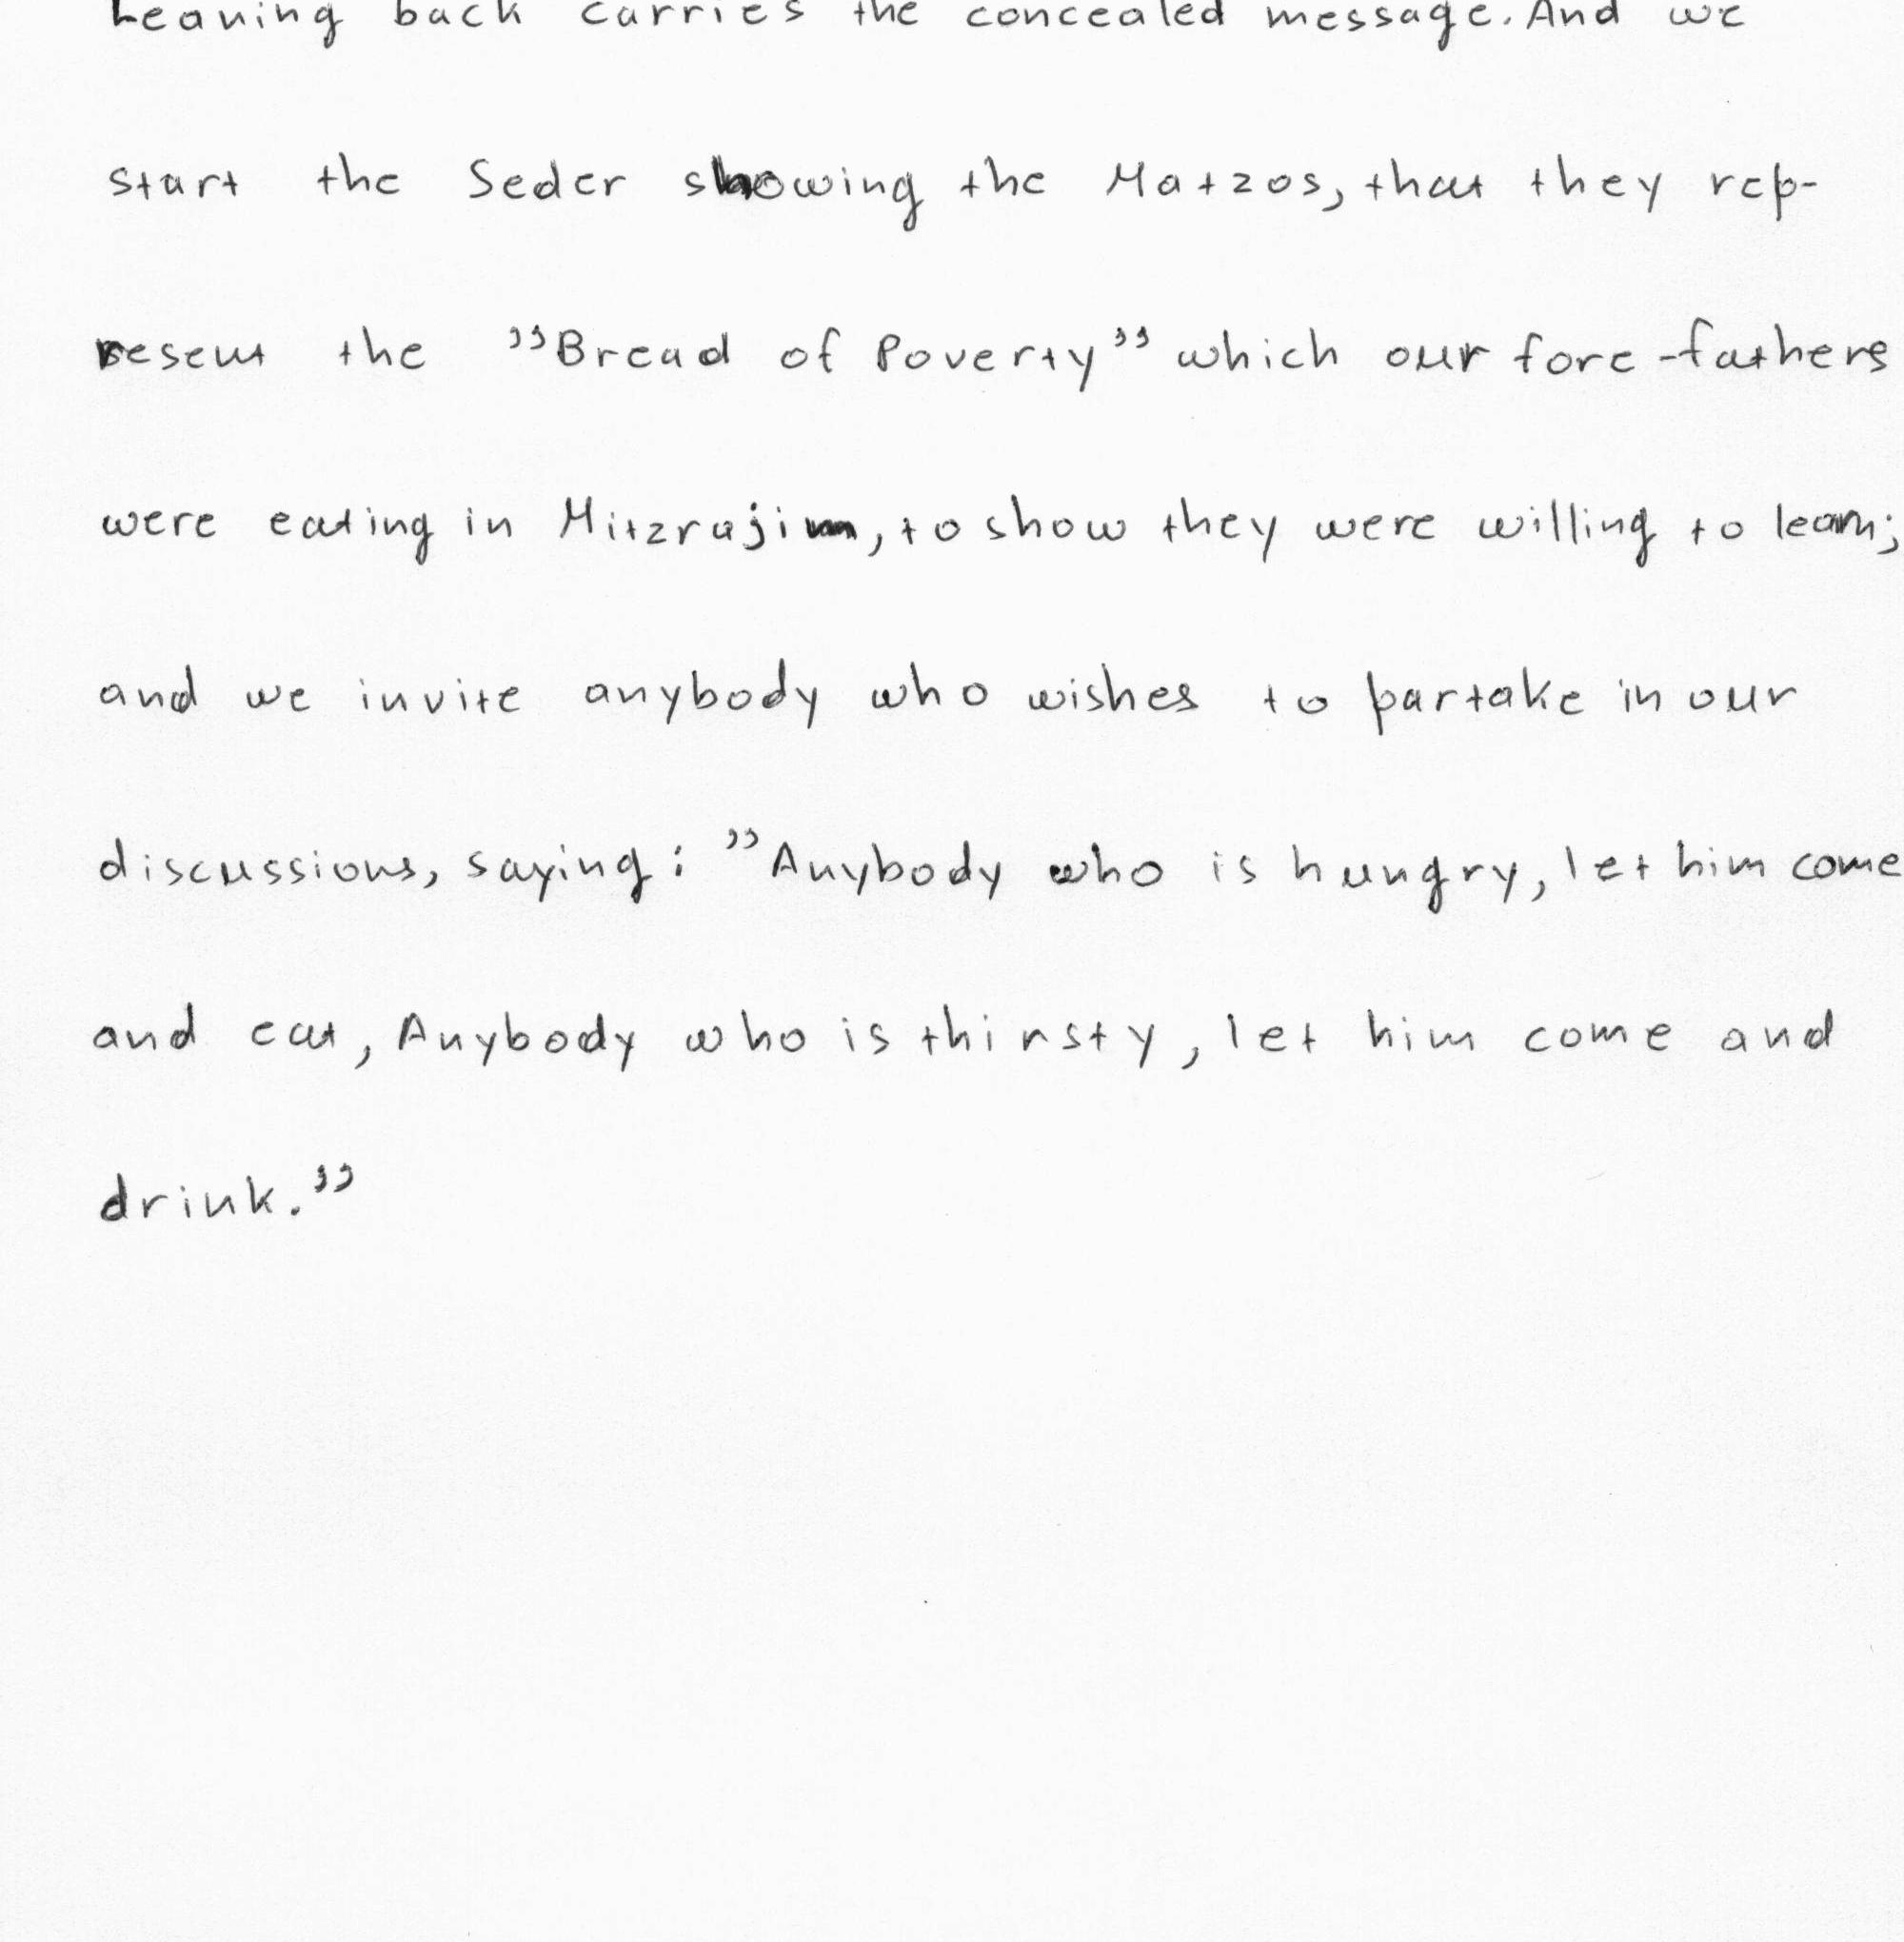 Leaning back carries the concealed message. And we
start the Seder showing the Matzos, that they rep-
resent the ”Bread of Poverty” which our fore-fathers
were eating in Mitzrajim, to show they were willing to learn;
and we invite anybody who wishes to partake in our
discussions, saying: ”Anybody who is hungry, let him come
and eat, Anybody who is thirsty, let him come and
drink.”